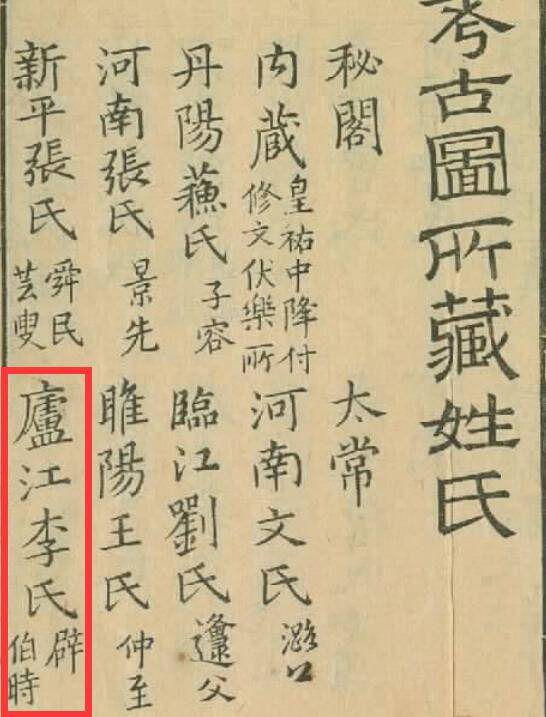 考古圖所藏姓氏
秘閣　太常
内藏 皇祐中降付修文伏樂所　河南文氏 潞公
丹陽蘓氏 子容　臨江劉氏 邍父
河南張氏 景先　睢陽王氏 仲至
新平張氏 舜民芸叟　廬江李氏 辟伯時